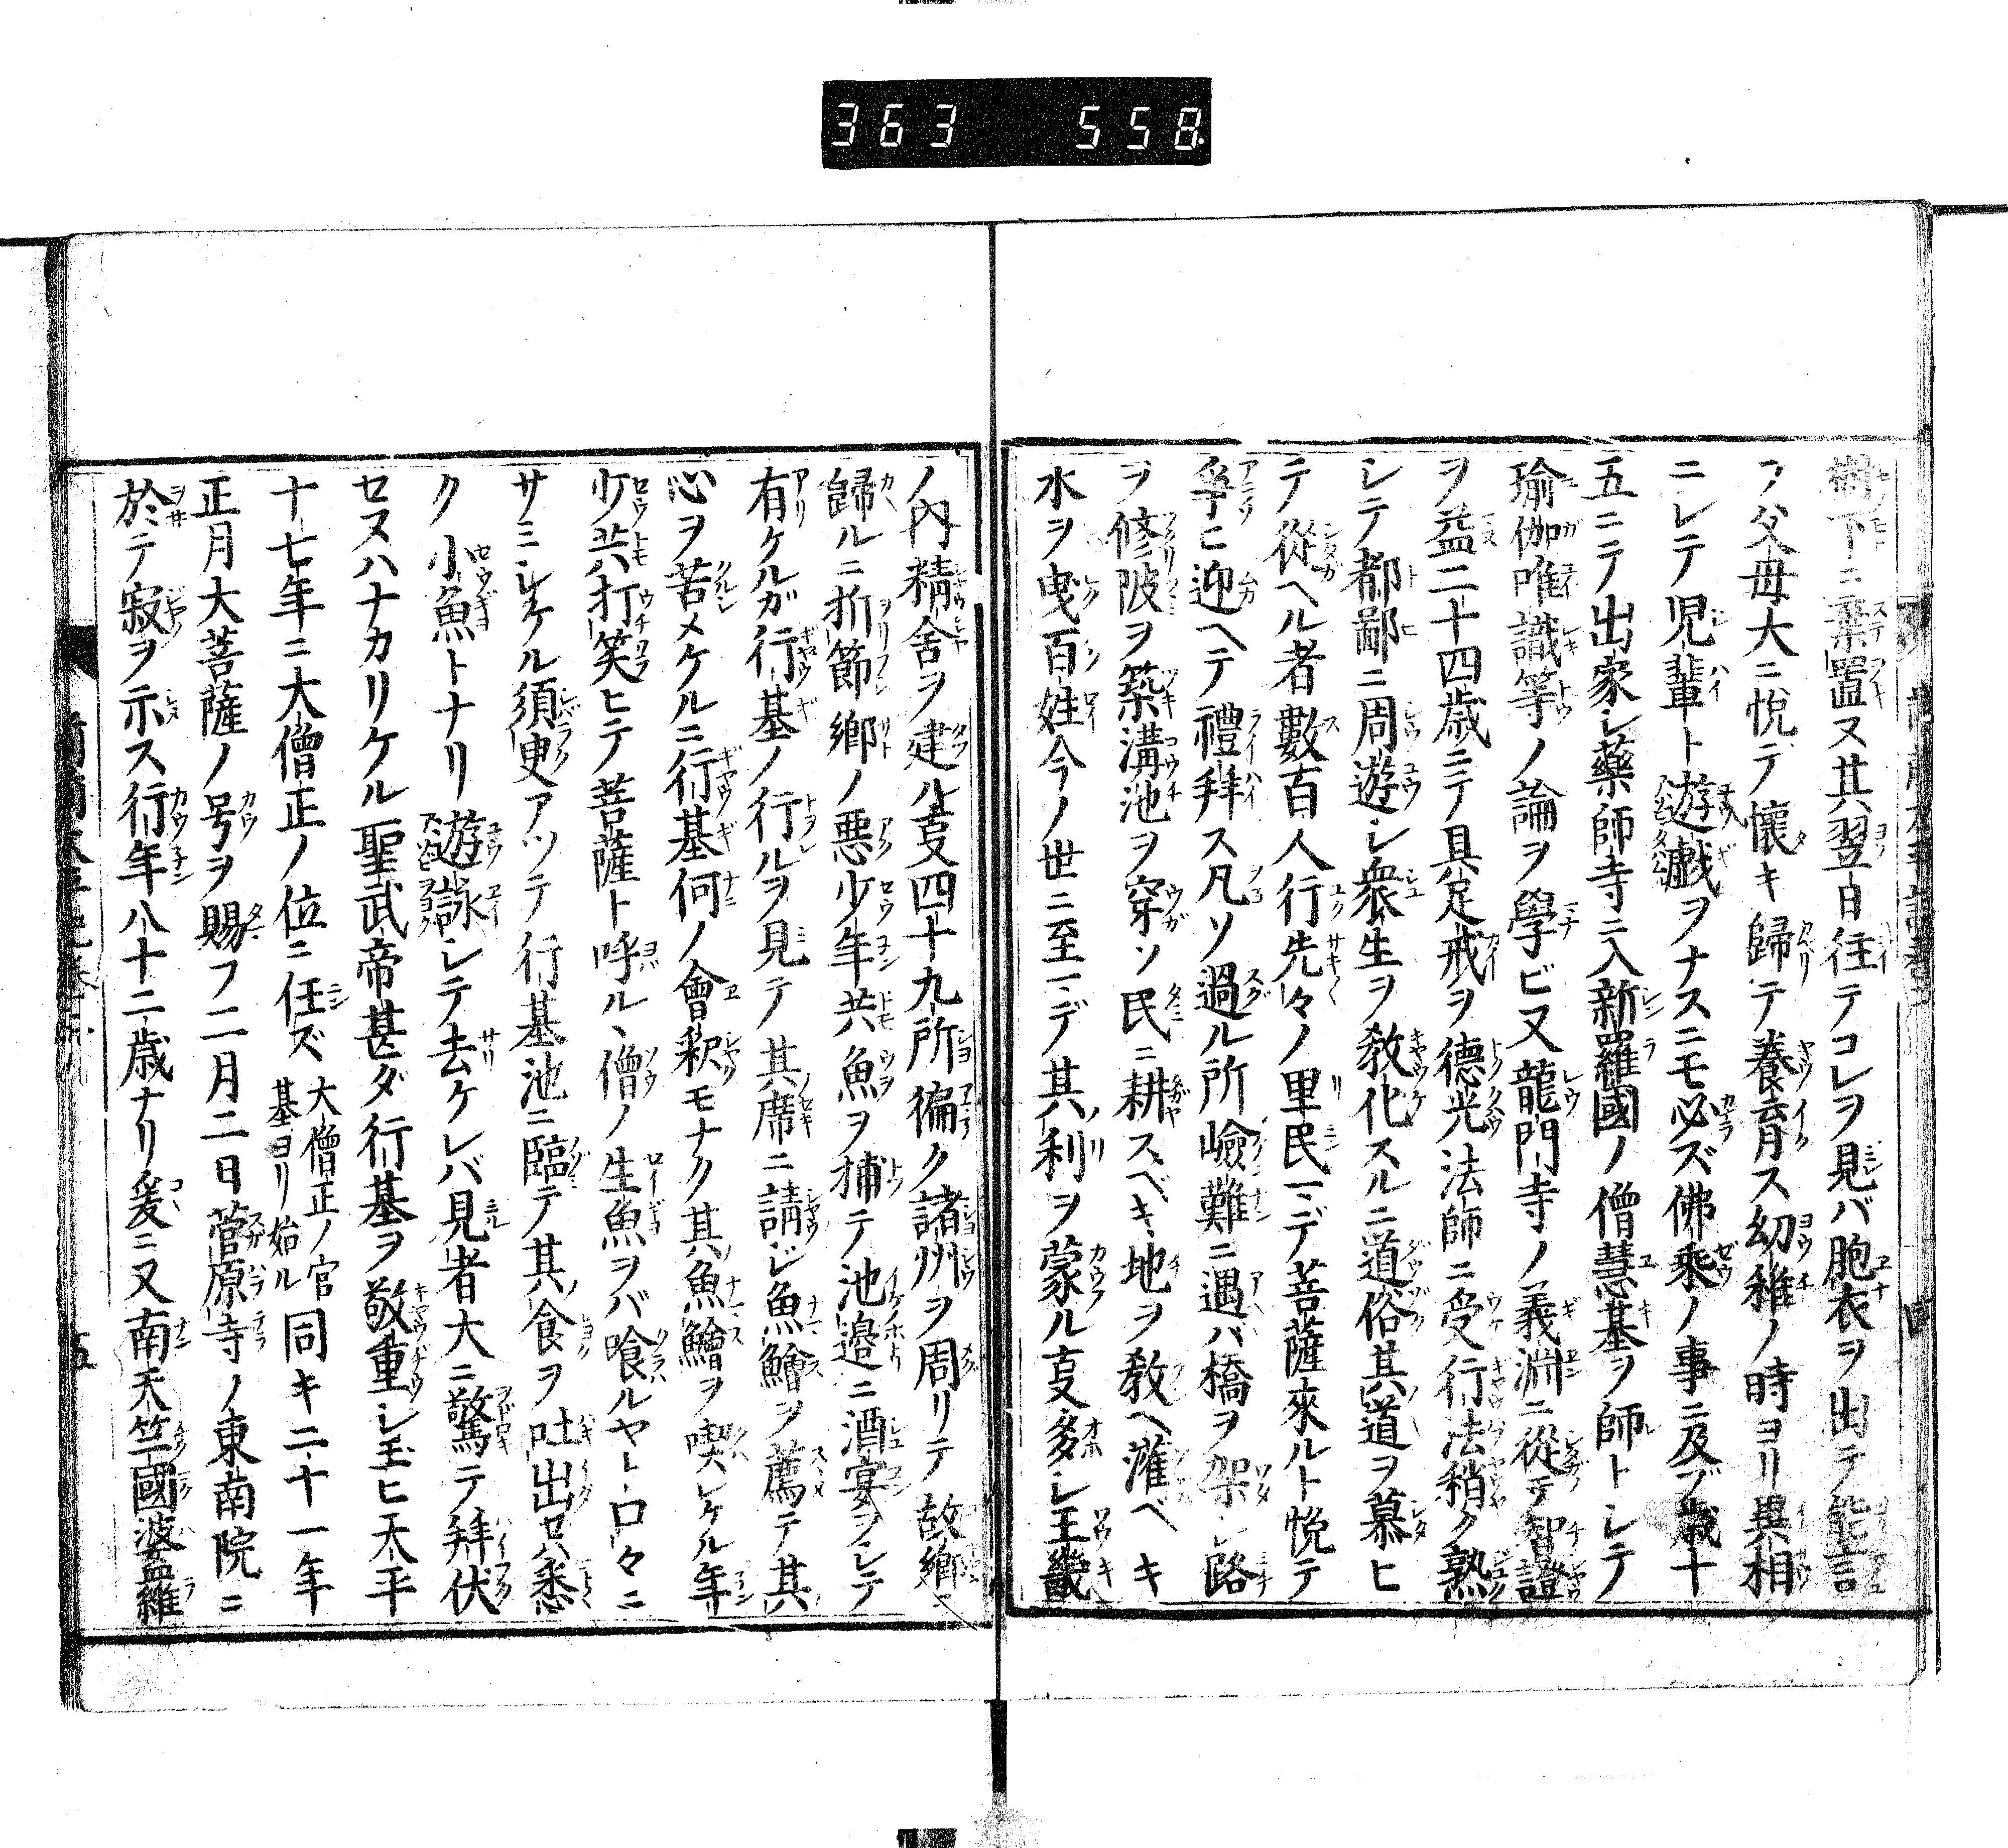 363 558
樹下ニ棄置ヌ其翌日往テコレヲ見バ胞衣ヲ出テ能言
フ父母大ニ悦テ懷キ歸テ養育ス幼稚ノ時ヨリ異相
ニシテ児輩ト遊戯ヲナスニモ必ズ佛乘ノ事ニ及ブ歳十
五ニテ出家シ藥師寺ニ入新羅國ノ僧慧基ヲ師トシテ
瑜伽唯識等ノ論ヲ學ビ又龍門寺ノ義淵ニ從テ智證
ヲ益二十四歳ニテ具足戒ヲ德光法師ニ受行法稍ク熟
シテ都鄙ニ周遊シ衆生ヲ教化スルニ道俗其道ヲ慕ヒ
テ從ヘル者數百人行先々ノ里民マデ菩薩來ルト悦テ
爭ヒ迎ヘテ禮拜ス凡ソ過ル所嶮難ニ遇バ橋ヲ架シ路
ヲ修陂ヲ築溝池ヲ穿ソ民ニ耕スベキ地ヲ教ヘ灌ベキ
水ヲ曳百姓今ノ世ニ至マデ其利ヲ蒙ル叓多シ王畿
ノ内精舍ヲ建ル叓四十九所徧ク諸州ヲ周リテ故郷ニ
歸ルニ折節郷ノ悪少年共魚ヲ捕テ池邉ニ酒宴ヲシテ
有ケルガ行基ノ行ルヲ見テ其席ニ請ジ魚鱠ヲ薦テ其
心ヲ苦メケルニ行基何ノ會釈モナク其魚鱠ヲ喫シケル年
少共打笑ヒテ菩薩ト呼ルヽ僧ノ生魚ヲバ喰ルヤト口々ニ
サミシケル須臾アツテ行基池ニ臨テ其食ヲ吐出セバ悉
ク小魚トナリ遊詠シテ去ケレバ見者大ニ驚テ拜伏
セヌハナカリケル聖武帝甚ダ行基ヲ敬重シ玉ヒ天平
十七年ニ大僧正ノ位ニ任ズ大僧正ノ官基ヨリ始ル同キ二十一年
正月大菩薩ノ号ヲ賜フ二月二日菅原寺ノ東南院ニ
於テ寂ヲ示ス行年八十二歳ナリ爰ニ又南天竺國婆羅
五